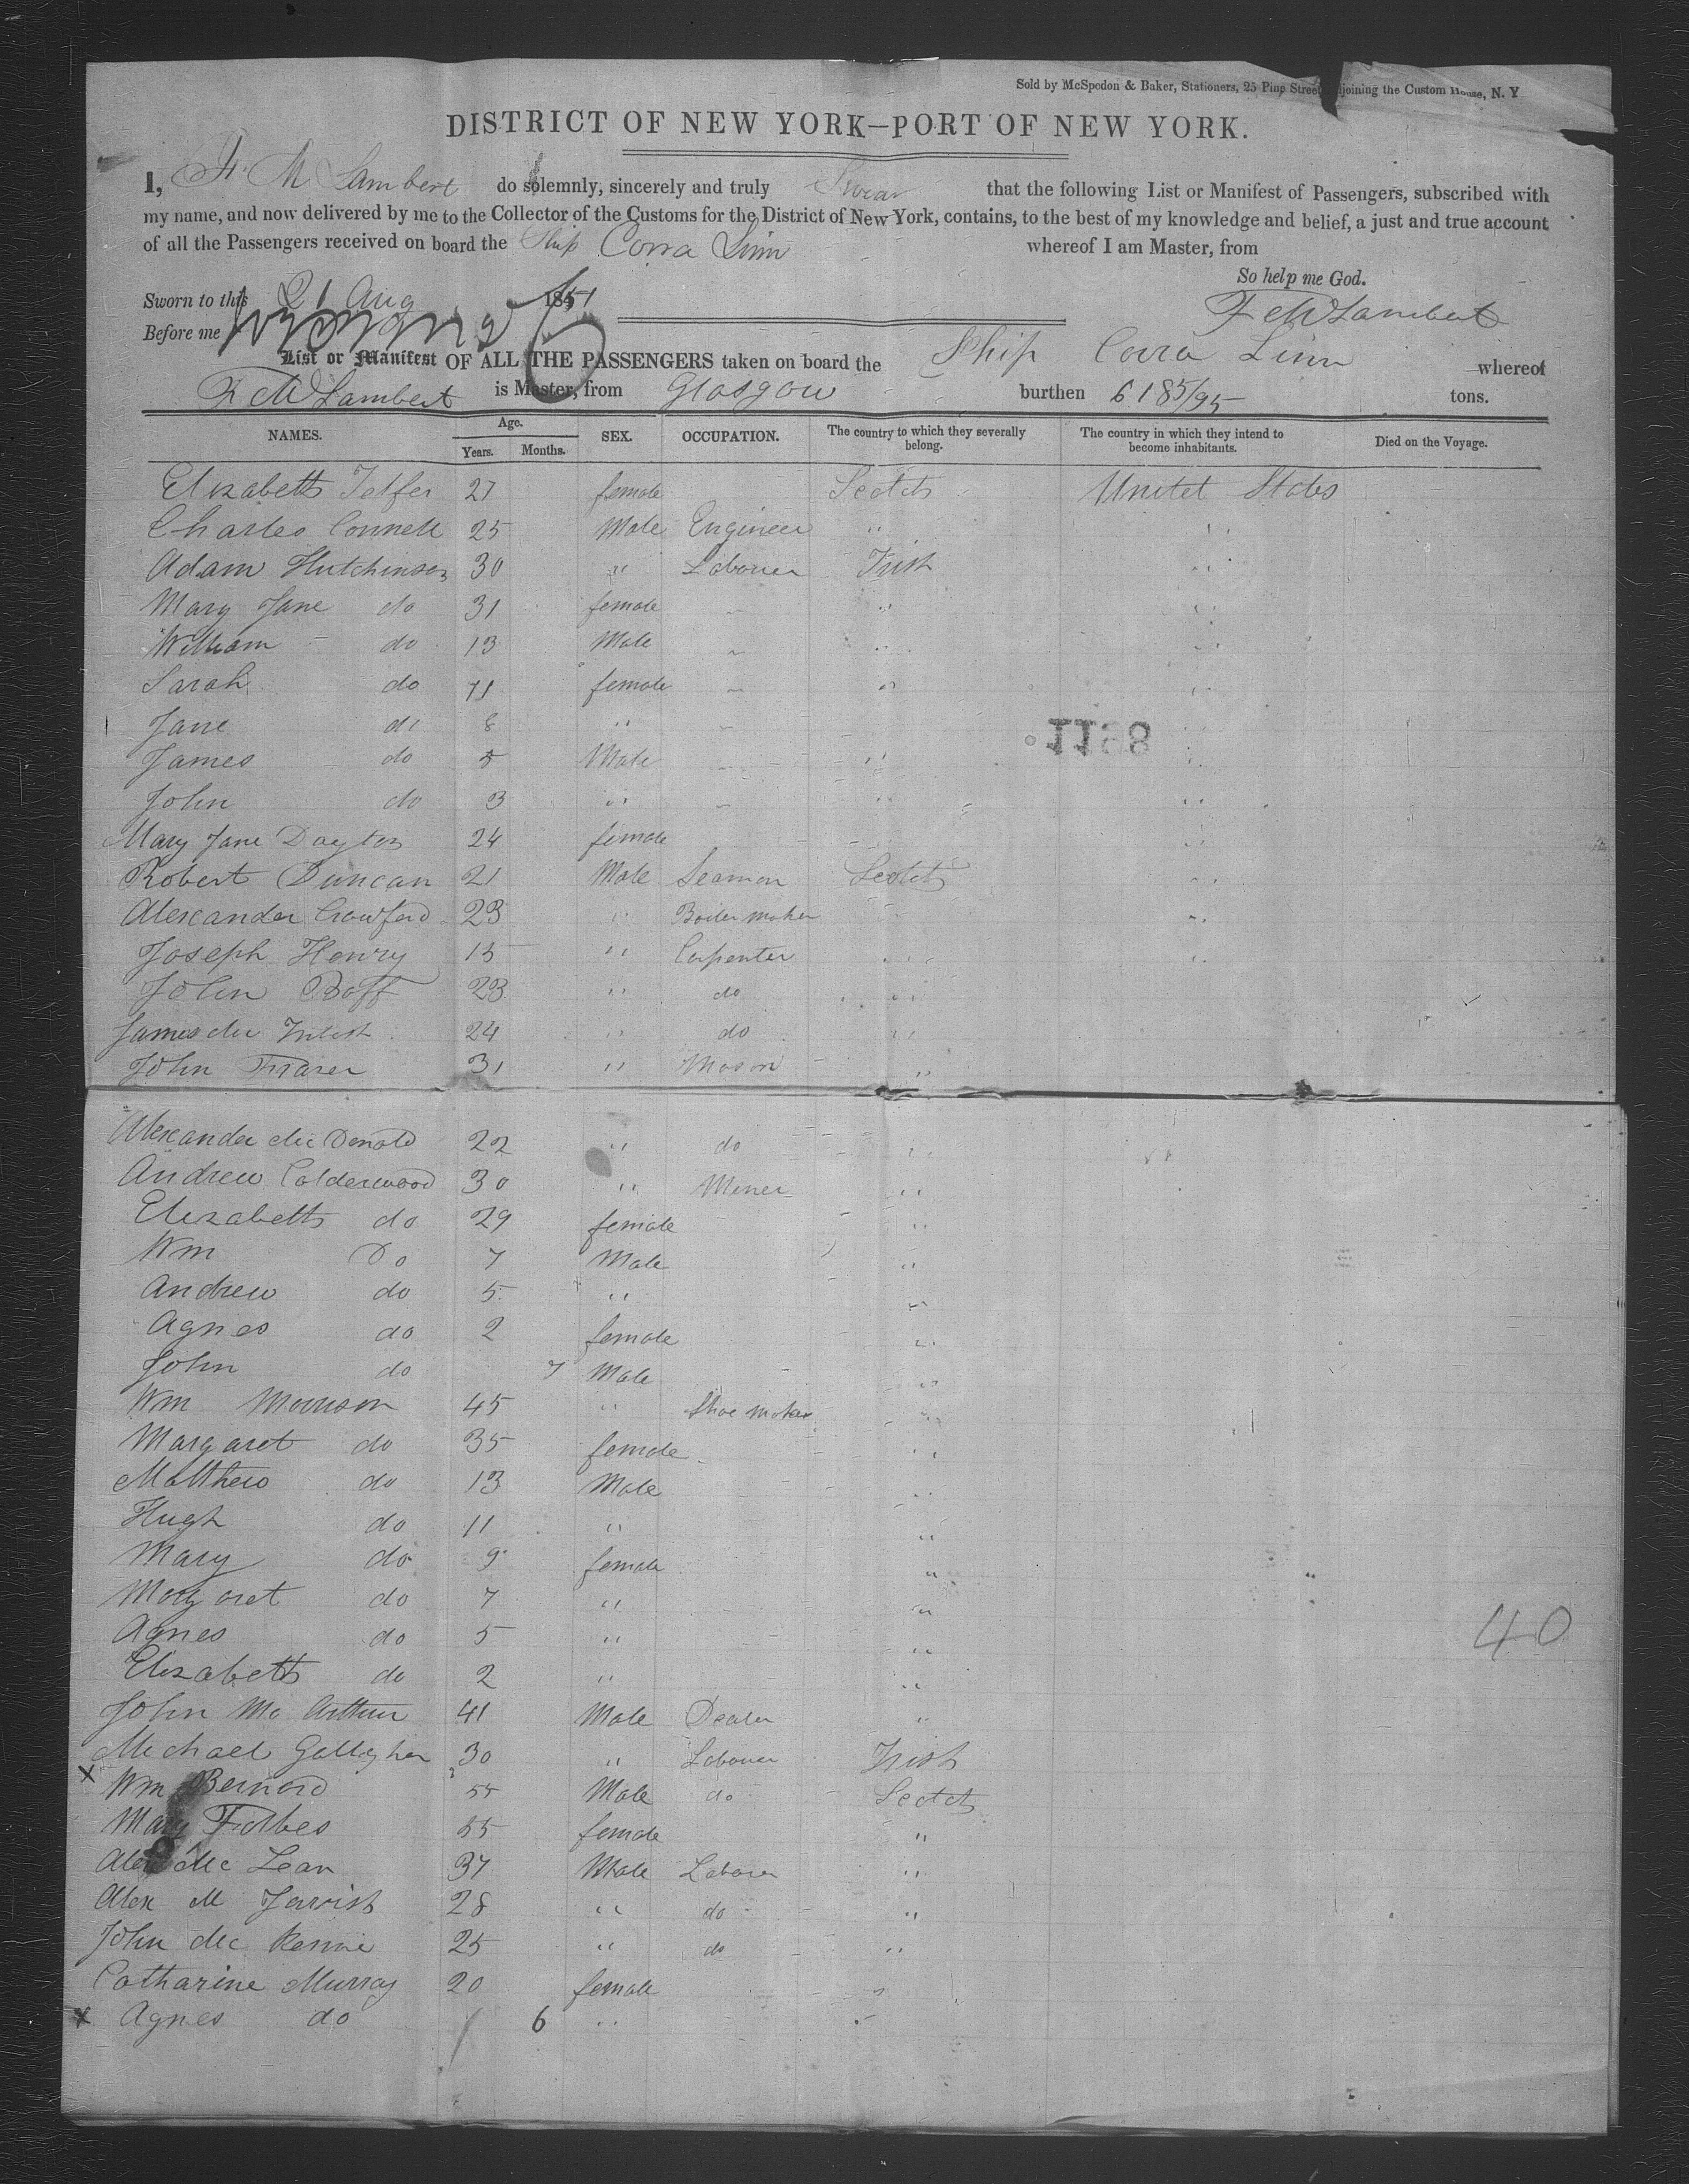 Sold by McSpedon & Baker, Stationers, 25 Pine Street, adjoining the Custom House, N. Y.
DISTRICT OF NEW YORK—PORT OF NEW YORK.
I, F. M Lambert do solemnly, sincerely and truly Swear that the following List or Manifest of Passengers, subscribed with
my name, and now delivered by me to the Collector of the Customs for the District of New York, contains, to the best of my knowledge and belief, a just and true account
of all the Passengers received on board the Ship Corra Linn whereof I am Master, from
So help me God.
Sworn to this 21 Aug 1851
F M Lambert
Before me
List or Manifest OF ALL THE PASSENGERS taken on board the Ship Corra Linn whereof
F M Lambert is Master, from Glasgow burthen 618 5/95 tons.
NAMES. Age. Years. Months. SEX. OCCUPATION. The country to which they severally belong. The country in which they intend to become inhabitants. Died on the Voyage.
Elizabeth Telfer 27 female Scotch United States
Charles Connell 25 Male Engineer " "
Adam Hutchinson 30 " Labourer Irish "
Mary Jane do 31 female " "
William do 13 Male " "
Sarah do 11 female " "
Jane do 8 " "
James do 5 Male " "
John do 3 " " "
Mary Jane Dayton 24 female "
Robert Duncan 21 Male Seaman Scotch "
Alexander Crawford 23 " Boiler maker "
Joseph Henry 15 " Carpenter " "
John Boff 23 " do "
James Mc 24 " do "
John Frazer 31 " Mason "
1198
Alexander Mc Donald 22 " do " "
Andrew Calderwood 30 " Miner "
Elizabeth do 29 female "
Wm Do 7 Male "
Andrew do 5 " "
Agnes do 2 female "
John do 7 Male "
Wm Morrison 45 " Shoe maker "
Margaret do 35 female "
Matthew do 13 Male "
Hugh do 11 " "
Mary do 9 female "
Margaret do 7 " "
Agnes do 5 " "
Elizabeth do 2 " "
John Mc Arthur 41 Male Dealer "
Michael Gallagher 30 " Labourer Irish
x Wm Bernard 55 Male do Scotch
Mary Forbes 55 female "
Alex Mc Lean 37 Male Laborer "
Alex M 28 " do "
John Mc Kennie 25 " do "
Catharine Murray 20 female "
x Agnes do 6 " "
40